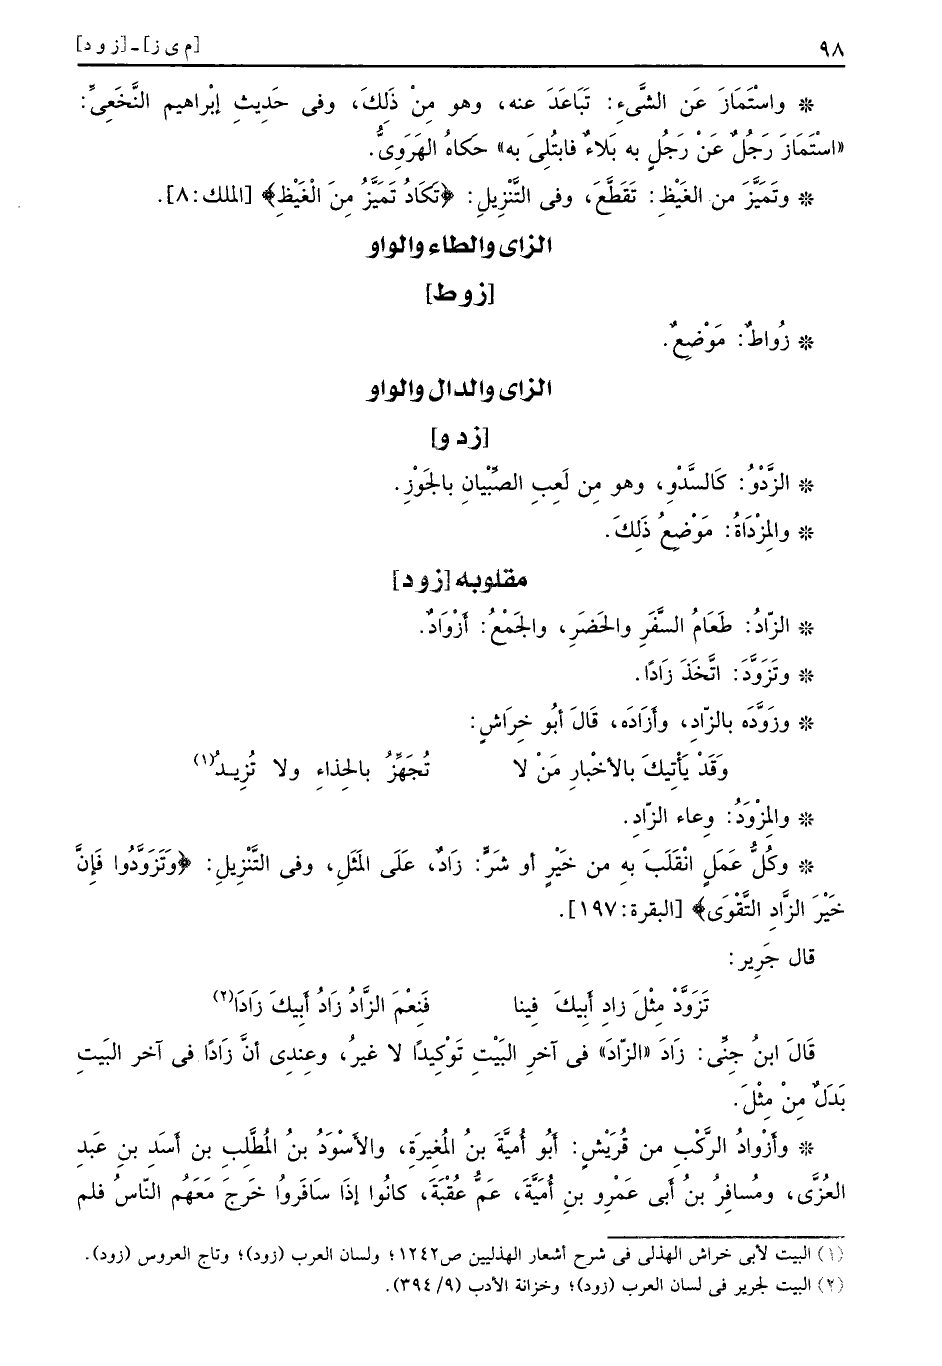 ٩٨ [م ى ز] ـ [ز و د]
❊ واسْتَمَازَ عَن الشَّىءِ: تَبَاعَدَ عنه، وهو مِنْ ذَلِكَ، وفى حَدِيثِ إبْراهيم النَّخَعِىِّ:
«اسْتَمَازَ رَجُلٌ عَنْ رَجُلٍ به بَلاءٌ فابتُلِىَ به» حَكاهُ الهَرَوِىُّ.
❊ وتَمَيَّزَ من الغَيظِ: تَقَطَّعَ، وفى التَّنْزِيلِ: ﴿تَكَادُ تَمَيَّزُ مِنَ الْغَيْظِ﴾ [الملك: ٨].
الزاى والطاء والواو
[زوط]
❊ زُواطٌ: مَوْضِعٌ.
الزاى والدال والواو
[زد و]
❊ الزَّدْوُ: كَالسَّدْوِ، وهو مِن لَعِبِ الصِّبْيانِ بالجَوْزِ.
❊ والمِزْدَاةُ: مَوْضِعُ ذَلِكَ.
مقلوبه [زود]
❊ الزّادُ: طَعَامُ السَّفَرِ والحَضَرِ، والجَمْعُ: أَزْوَادٌ.
❊ وتَزَوَّدَ: اتَّخَذَ زَادًا.
❊ وزَوَّدَه بالزّادِ، وأَزَادَه، قَالَ أبُو خِرَاشٍ:
وَقَدْ يَأْتِيكَ بالأخْبارِ مَنْ لا تُجَهِّزُ بالحِذاءِ ولا تُزِيـدُ(١)
❊ والمِزْوَدُ: وِعاء الزّادِ.
❊ وكُلُّ عَمَلٍ انْقَلَبَ بِه من خَيْرٍ أو شَرٍّ: زَادٌ، عَلَى المَثَلِ، وفى التَّنْزِيلِ: ﴿وَتَزَوَّدُوا فَإِنَّ
خَيْرَ الزَّادِ التَّقْوَى﴾ [البقرة: ١٩٧].
قال جَرِير:
تَزَوَّدْ مِثْلَ زادِ أَبِيكَ فِينا فَنِعْمَ الزَّادُ زَادُ أَبِيكَ زَادَا(٢)
قَالَ ابنُ جِنِّى: زَادَ «الزّادَ» فى آخرِ البَيْتِ تَوْكيدًا لا غيرُ، وعندِى أنَّ زَادًا فى آخر البَيتِ
بَدَلٌ مِنْ مِثْلَ.
❊ وأَزْوادُ الرَّكْبِ من قُرَيْشٍ: أَبُو أُميَّةَ بنُ المُغيرَةِ، والأَسْوَدُ بنُ المُطَّلِبِ بن أَسَدِ بنِ عَبدِ
العُزَّى، ومُسافِرُ بنُ أبى عَمْرِو بنِ أُمَيَّةَ، عَمُّ عُقْبَةَ، كانُوا إذَا سافَروُا خَرجَ مَعَهُم النّاسُ فلم
(١) البيت لأبى خراش الهذلى فى شرح أشعار الهذليين ص١٢٤٢؛ ولسان العرب (زود)؛ وتاج العروس (زود).
(٢) البيت لجرير فى لسان العرب (زود)؛ وخزانة الأدب (٩/ ٣٩٤).